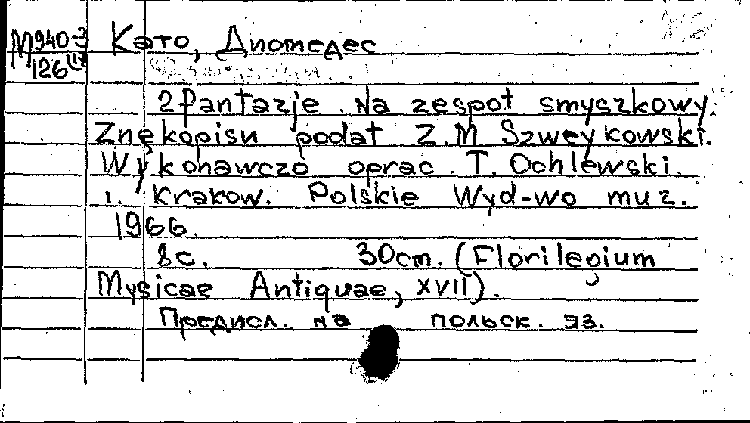 М940-3 Като, Диомедес
126
2 Fantazje. Na zespoł smyszkowy.
Znękopisu podat Z. M Szweykowski.
Wykonawczo oprac. T. Ochlewski.
1. Krakow. Polskie Wyd-wo muz.
1966.
8с. 30cm. (Florilegium
Mysicae Antiquae, XVII).
Предисл. на польск. яз.